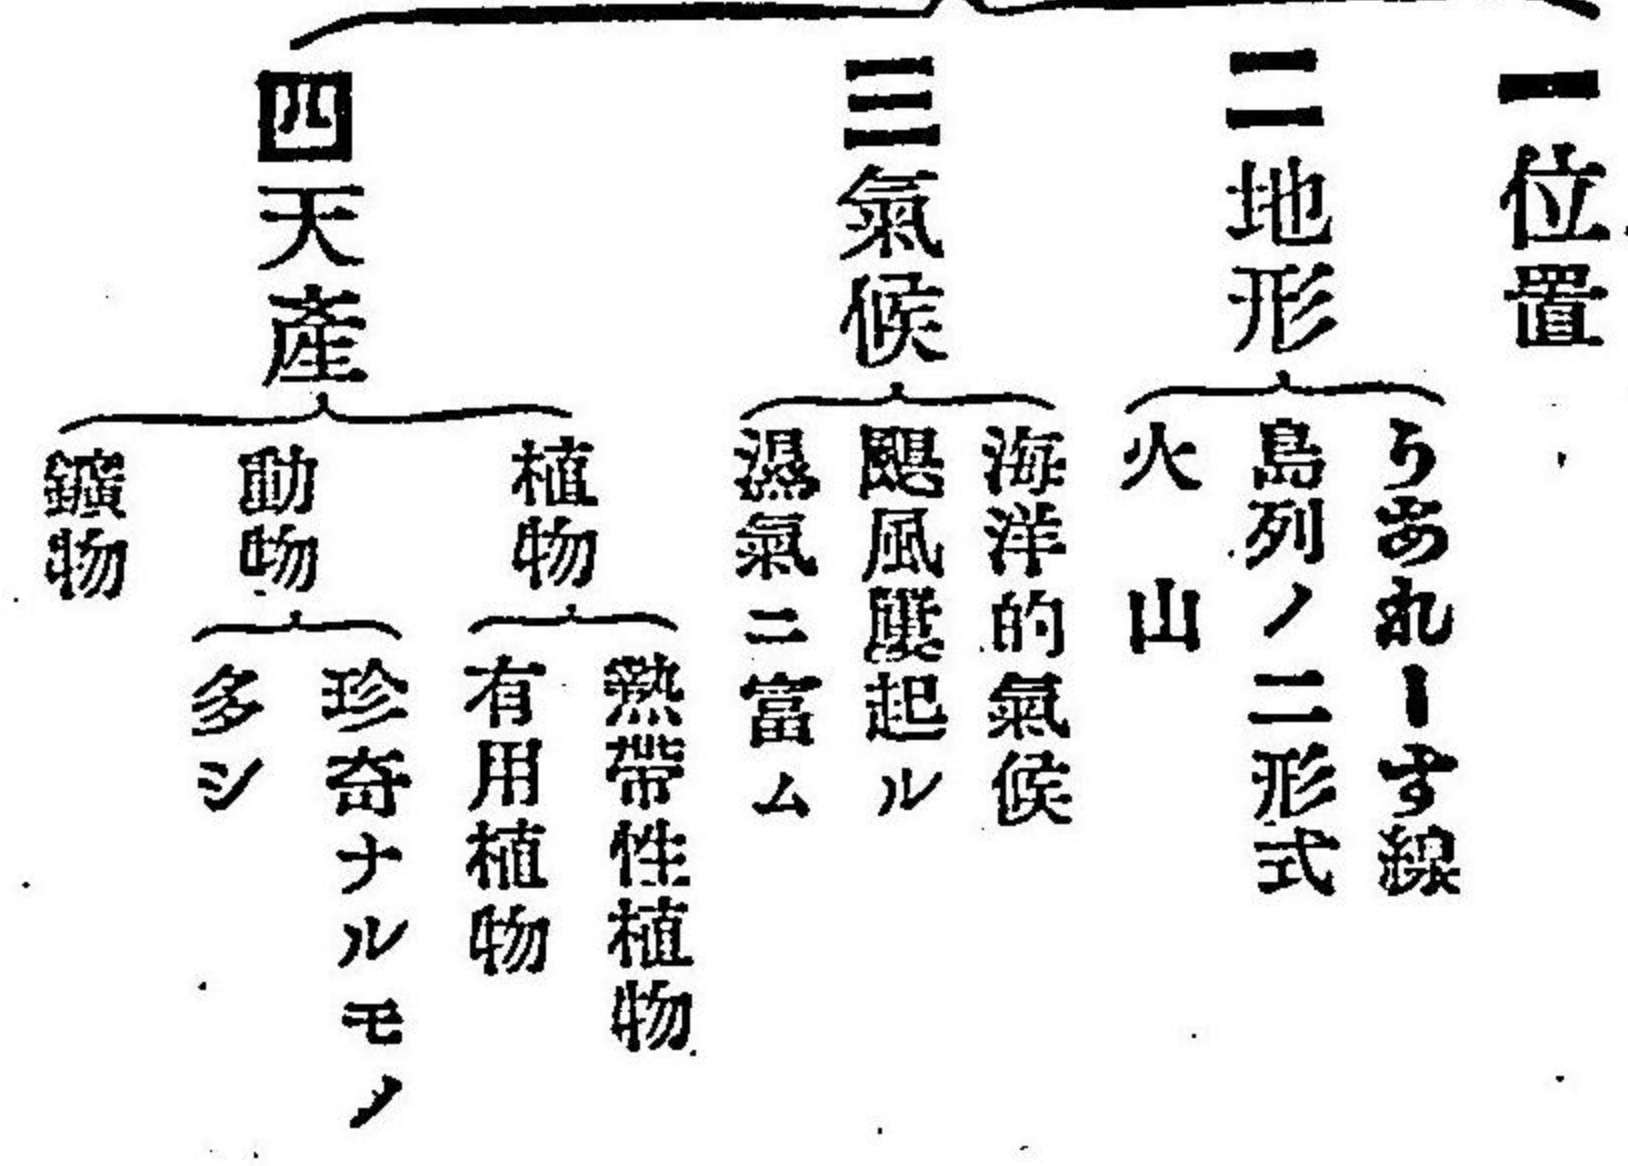 一位置
二地形
うあれーす線
島列ノ二形式
火山
三氣候
海洋的氣候
颶風屢起ル
濕氣ニ富ム
四天產
植物
熱帶性植物
有用植物
動物
珍奇ナルモノ
多シ
鑛物